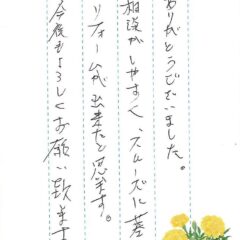 ありがとうございました。
相談がしやすく、スムーズに
リフォームが出来たと思います。
今後もよろしくお願い致します